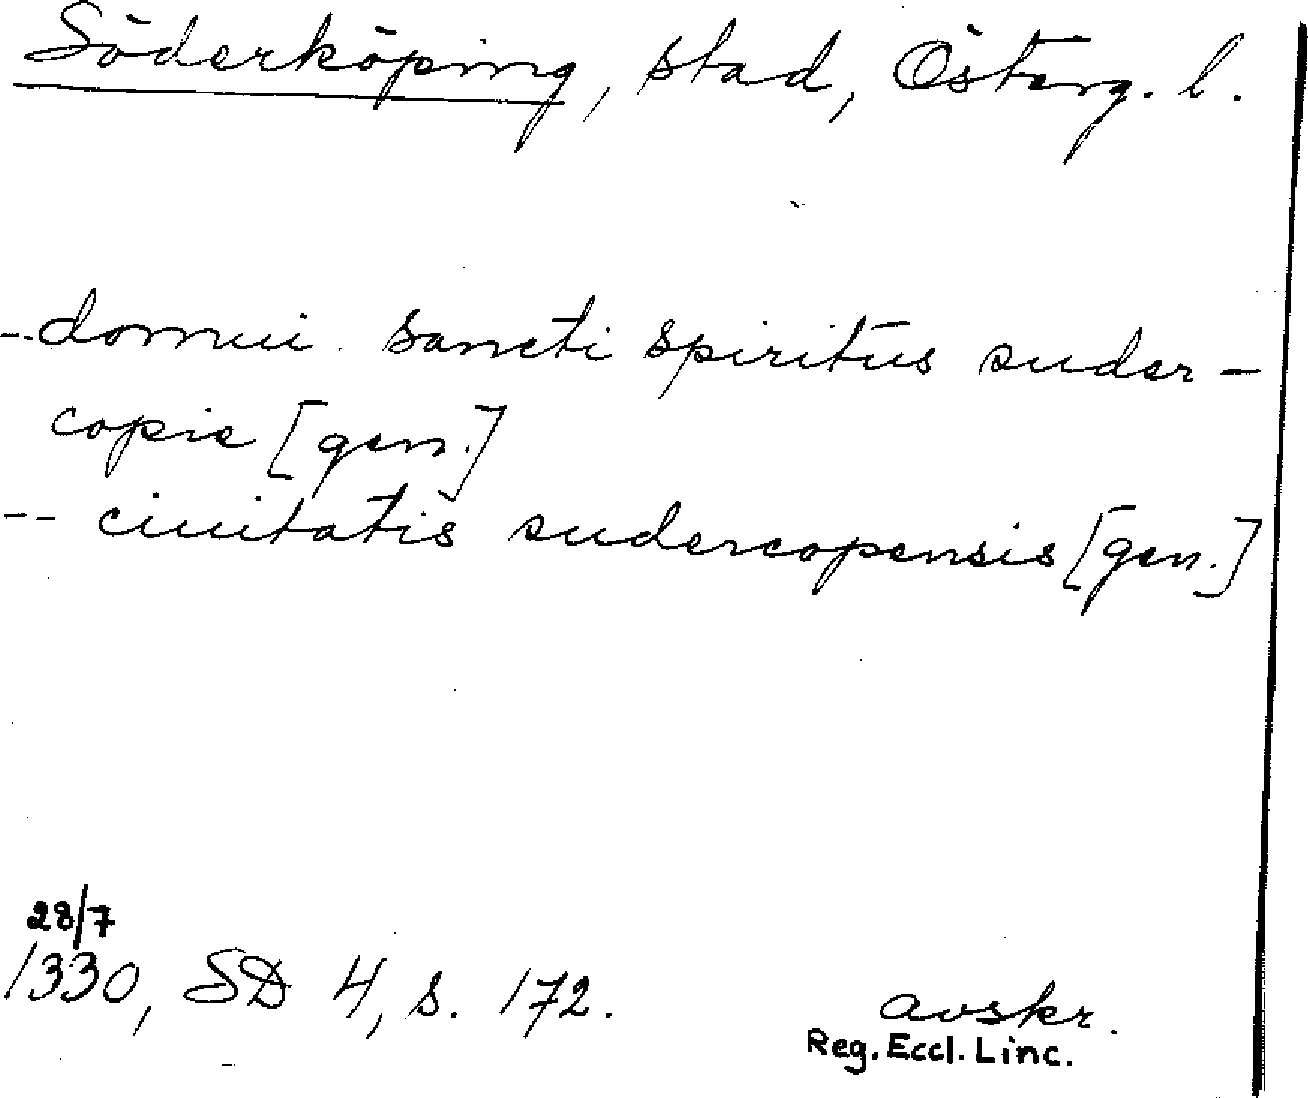 Söderköping, stad, Österg. l.
-- domui sancti spiritus suder-
copie [gen.]
-- ciuitatis sudercopensis [gen.]
28/7
1330, SD 4, s. 172.
avskr.
Reg. Eccl. Linc.